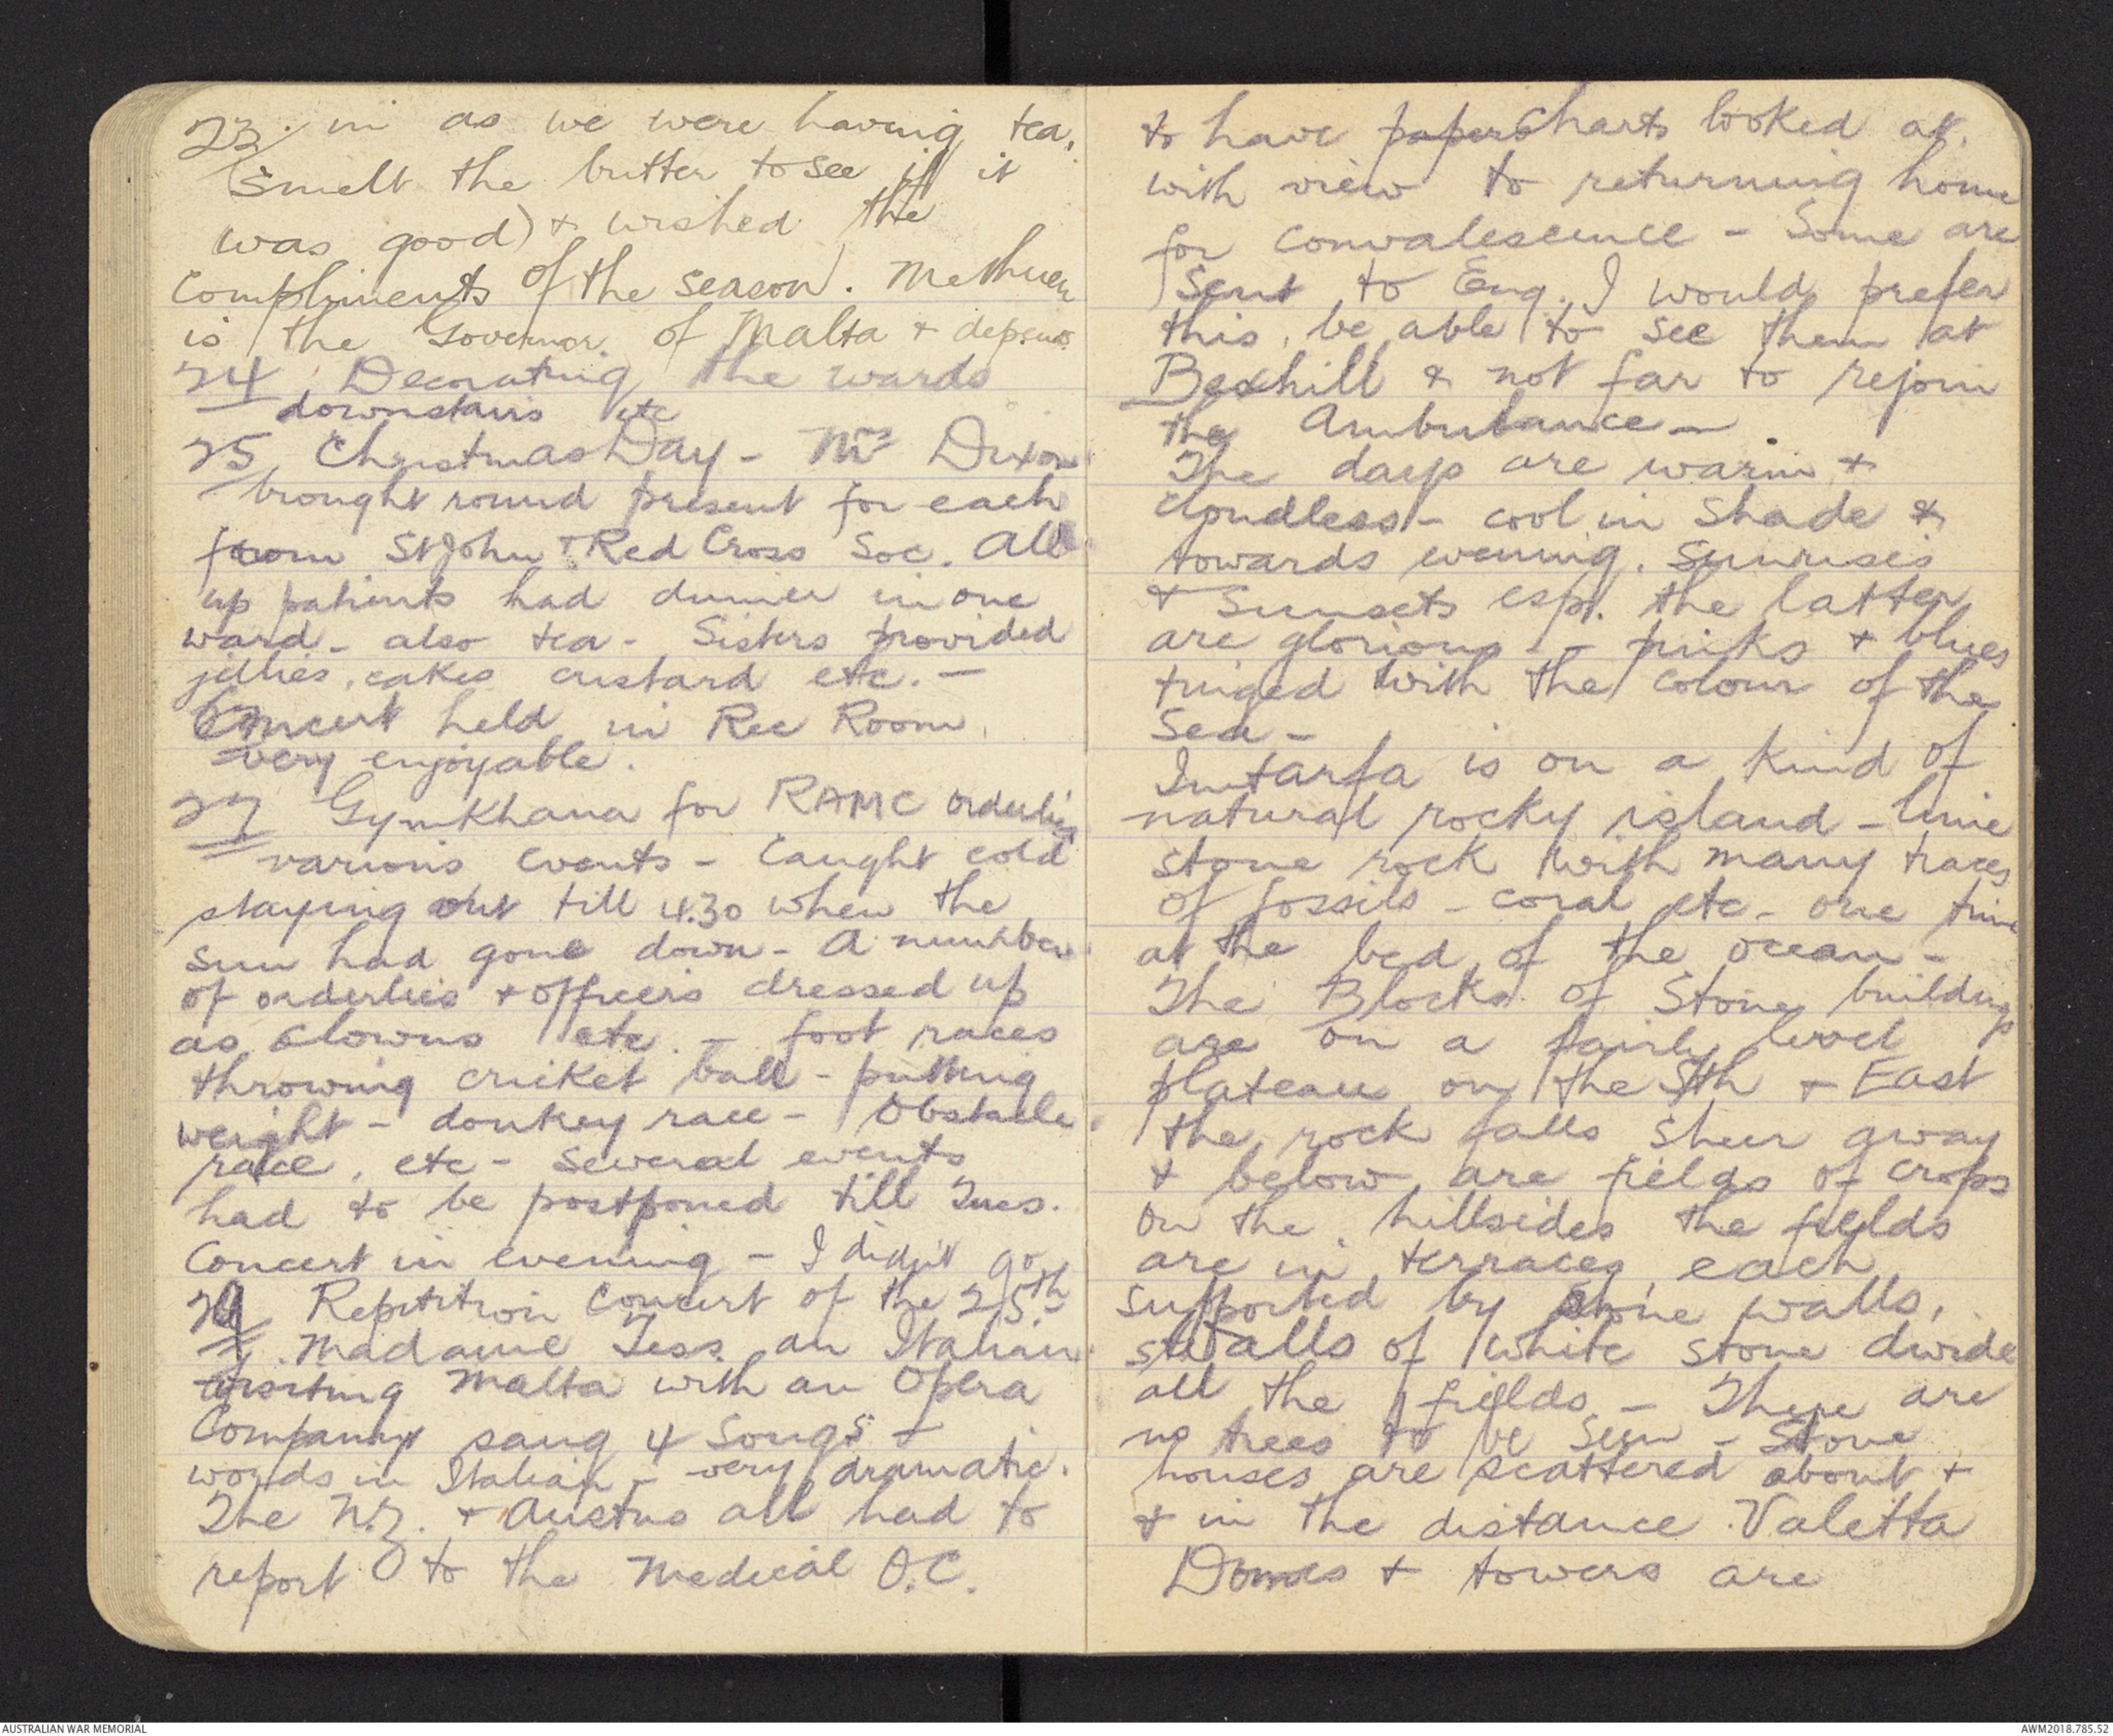 23/ in as we were having tea,
(smelt the butter to see if it
was good) & wished the
compliments of the season. Methuen
is the Governor of Malta &
24 Decorating the wards
downstairs etc
25 Christmas Day - Mrs Dixon
brought round present for each
from St John & Red Cross Soc. All
up patients had dinner in one
ward - also tea - Sisters provided
jellies, cakes custard etc. -
Concert held in Rec Room.
very enjoyable.
27 Gymkhana for RAMC orderlies
various events - Caught cold
staying out till 4.30 when the
sun had gone down - A number
of orderlies & officers dressed up
as clowns etc. - foot races
throwing cricket ball - putting
weight - donkey race - Obstacle
race, etc - several events
had to be postponed till Tues.
Concert in evening - I didn't go
29 Repetition Concert of the 25th
Madame Tess an Italian
visiting Malta with an Opera
Company sang 4 songs -
words in Italian - very dramatic.
The N.Z. & Austns all had to
report to the Medical O.C.
to have papers charts looked at.
with view to returning home
for convalescence - Some are
sent to Eng. I would prefer
this, be able to see them at
Bexhill & not far to rejoin
the Ambulance -
The days are warm &
cloudless - cool in shade &
towards evening. Sunrises
& Sunsets esp. the latter
are glorious - pinks & blues
tinged with the colour of the
sea -
Imtarfa is on a kind of
natural rocky island - lime
stone rock with many traces
of fossils - coral etc - one time
at the bed of the ocean -
The Blocks of Stone buildings
are on a fairly level
plateau on the Sth & East
the rock falls sheer away
& below are fields of crops
on the hillsides the fields
are in terraces each
supported by stone walls,
walls of white stone divide
all the fields - There are
no trees to be seen - Stone
houses are scattered about &
& in the distance Valetta
Domes & towers are
AUSTRALIAN WAR MEMORIAL
AWM2018.785.52